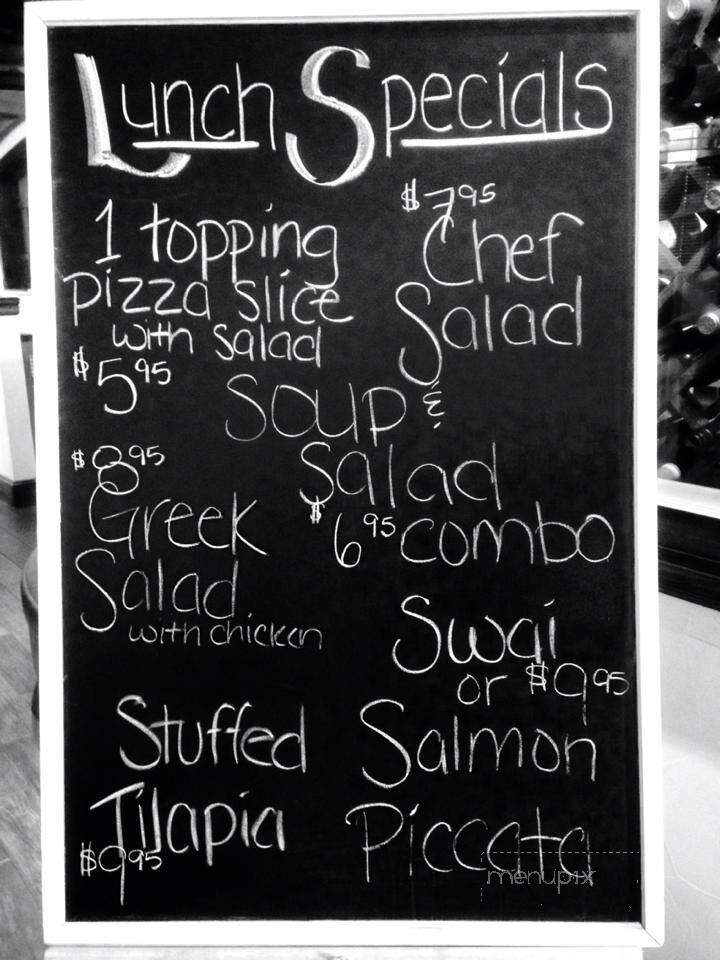 Lunch Specials
1 topping
pizza slice
with salad
$5.95
$7.95
Chef
Salad
Soup &
Salad
$6.95 combo
$8.95
Greek
Salad
with chicken
Swai
or $9.95
Salmon
Piccata
Stuffed
Tilapia
$9.95
menupix